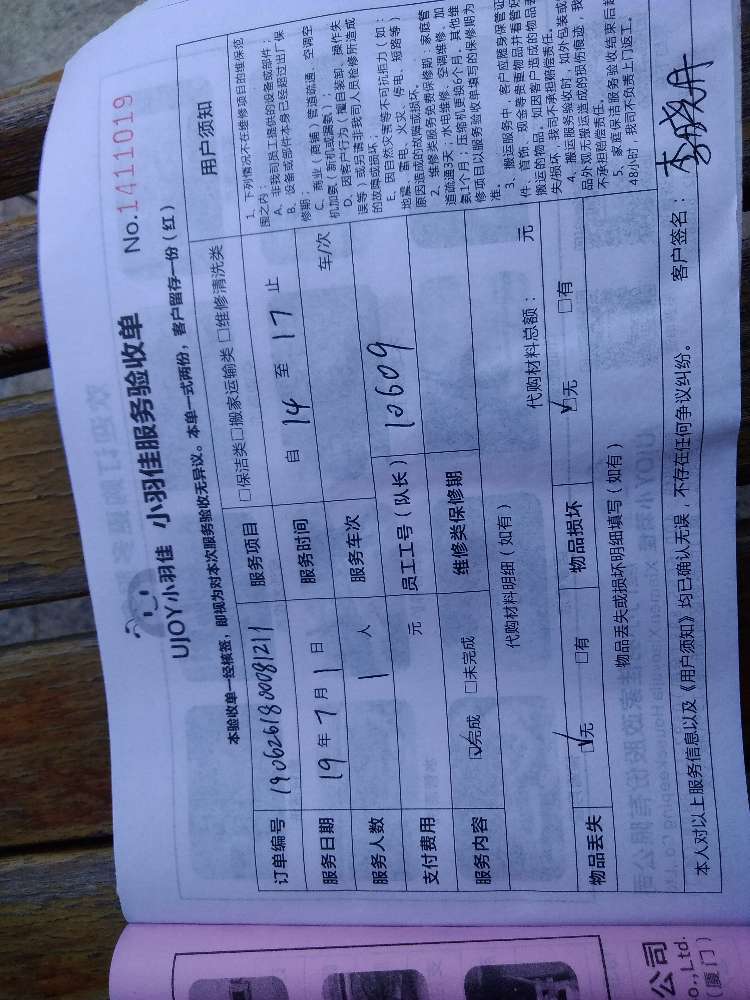 UJOY小羽佳 小羽佳服务验收单 No.1411019
本验收单一经核签，即视为对本次服务验收无异议。本单一式两份，客户留存一份（红）
订单编号 1906261800081211 服务项目 □保洁类□搬家运输类 □维修清洗类
服务日期 19 年 7 月 1 日 服务时间 自 14 至 17 止
服务人数 1 人 服务车次 车/次
支付费用 元 员工工号（队长） 12609
服务内容 ☑完成 □未完成 维修类保修期
代购材料明细（如有） 代购材料总额： 元
物品丢失 ☑无 □有 物品损坏 ☑无 □有
物品丢失或损坏明细填写（如有）
用户须知
1、下列情况不在维修项目的维保范
围之内：
A、非我司员工提供的设备或部件；
B、设备或部件本身已经超过出厂保
修期；
C、商业（商铺）管道疏通、空调空
机加氨（新机或漏氨）；
D、因客户行为（擅自装卸、操作失
误等）或另请非我司人员检修所造成
的故障或损坏；
E、因自然灾害等不可抗拒力（如：
地震、蓄电、火灾、停电、短路等）
原因造成的故障或损坏。
2、维修类服务免费保修期：家庭管
道疏通3天；水电维修、空调维修、加
氨1个月；压缩机更换6个月，其他维
修项目以服务验收单填写的保修期为
准。
3、搬运服务中，客户应随身保管证
件、首饰、现金等贵重物品并看管好
搬运的物品。如因客户造成的物品丢
失/损坏，我司不承担赔偿责任。
4、搬运服务验收时，如外包装或
品外观无搬运造成的损伤痕迹，我
不承担赔偿责任。
5、家庭保洁服务验收结束后超
48小时，我司不负责上门返工。
本人对以上服务信息以及《用户须知》均已确认无误，不存在任何争议纠纷。 客户签名：
公司
o.,Ltd.
（厦门）